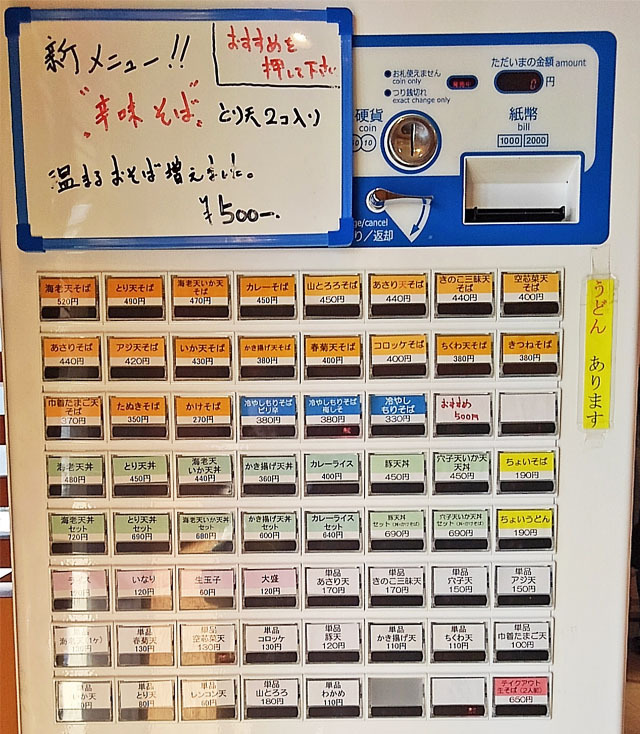 新メニュー!!
おすすめを
押して下さい
"辛味そば" とり天2コ入り
温まるおそば増えました。
¥500-.
お札使えません
coin only
つり銭切れ
exact change only
発売中
ただいまの金額 amount
0 円
硬貨
coin
紙幣
bill
1000 2000
ge/cancel
り/返却
うどん あります
海老天そば
520円
とり天そば
490円
海老天いか天
そば
470円
カレーそば
450円
山とろろそば
450円
あさり天そば
440円
きのこ三昧天
そば
440円
空芯菜天
そば
400円
あさりそば
440円
アジ天そば
420円
いか天そば
430円
かき揚げ天そば
380円
春菊天そば
400円
コロッケそば
400円
ちくわ天そば
380円
きつねそば
380円
巾着たまご天
そば
370円
たぬきそば
350円
かけそば
270円
冷やしもりそば
ピリ辛
380円
冷やしもりそば
梅しそ
380円
冷やし
もりそば
330円
おすすめ
500円
海老天丼
480円
とり天丼
450円
海老天
いか天丼
440円
かき揚げ天丼
360円
カレーライス
400円
豚天丼
450円
穴子天いか天
天丼
450円
ちょいそば
190円
海老天丼
セット
720円
とり天丼
セット
690円
海老天いか天丼
セット
680円
かき揚げ天丼
セット
600円
カレーライス
セット
640円
豚天丼
セット
690円
穴子天いか天丼
セット
690円
ちょいうどん
190円
いなり
120円
生玉子
60円
大盛
120円
単品
あさり天
170円
単品
きのこ三昧天
170円
単品
穴子天
150円
単品
アジ天
150円
単品
単品
春菊天
130円
単品
空芯菜天
130円
単品
コロッケ
130円
単品
豚天
120円
単品
かき揚げ天
110円
単品
ちくわ天
110円
単品
巾着たまご天
100円
単品
いか天
単品
とり天
80円
単品
レンコン天
60円
単品
山とろろ
180円
単品
わかめ
110円
テイクアウト
生そば(2人前)
650円